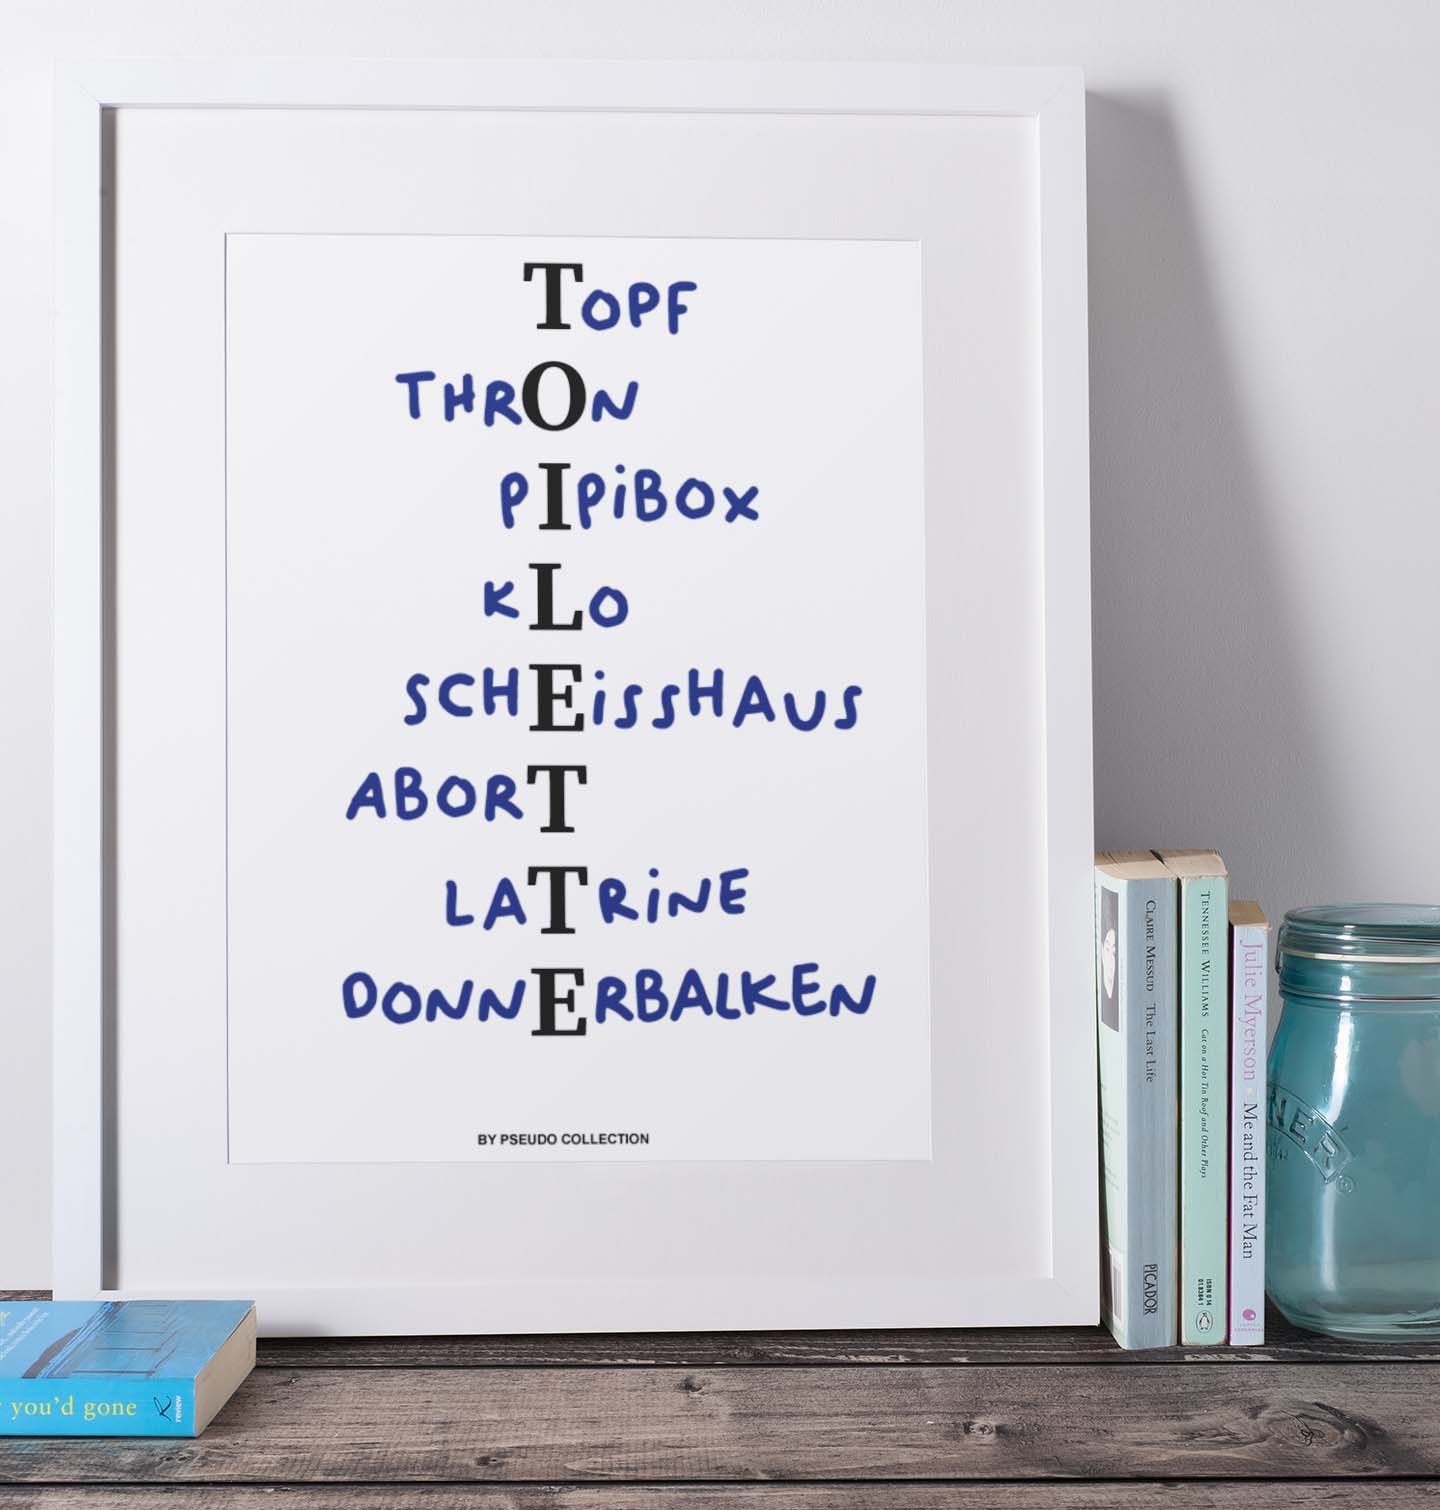 TOPF
THRON
PIPIBOX
KLO
SCHEISSHAUS
ABORT
LATRINE
DONNERBALKEN
BY PSEUDO COLLECTION
CLAIRE MESSUD The Last Life
PICADOR
TENNESSEE WILLIAMS Cat on a Hot Tin Roof and Other Plays
ISBN 0 14
Julie Myerson • Me and the Fat Man
NER
you'd gone
review